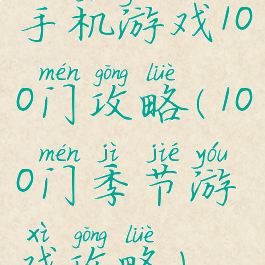 手机游戏10
mén gōng lüè
0门攻略(10
mén jì jié yóu
0门季节游
xì gōng lüè
戏攻略)